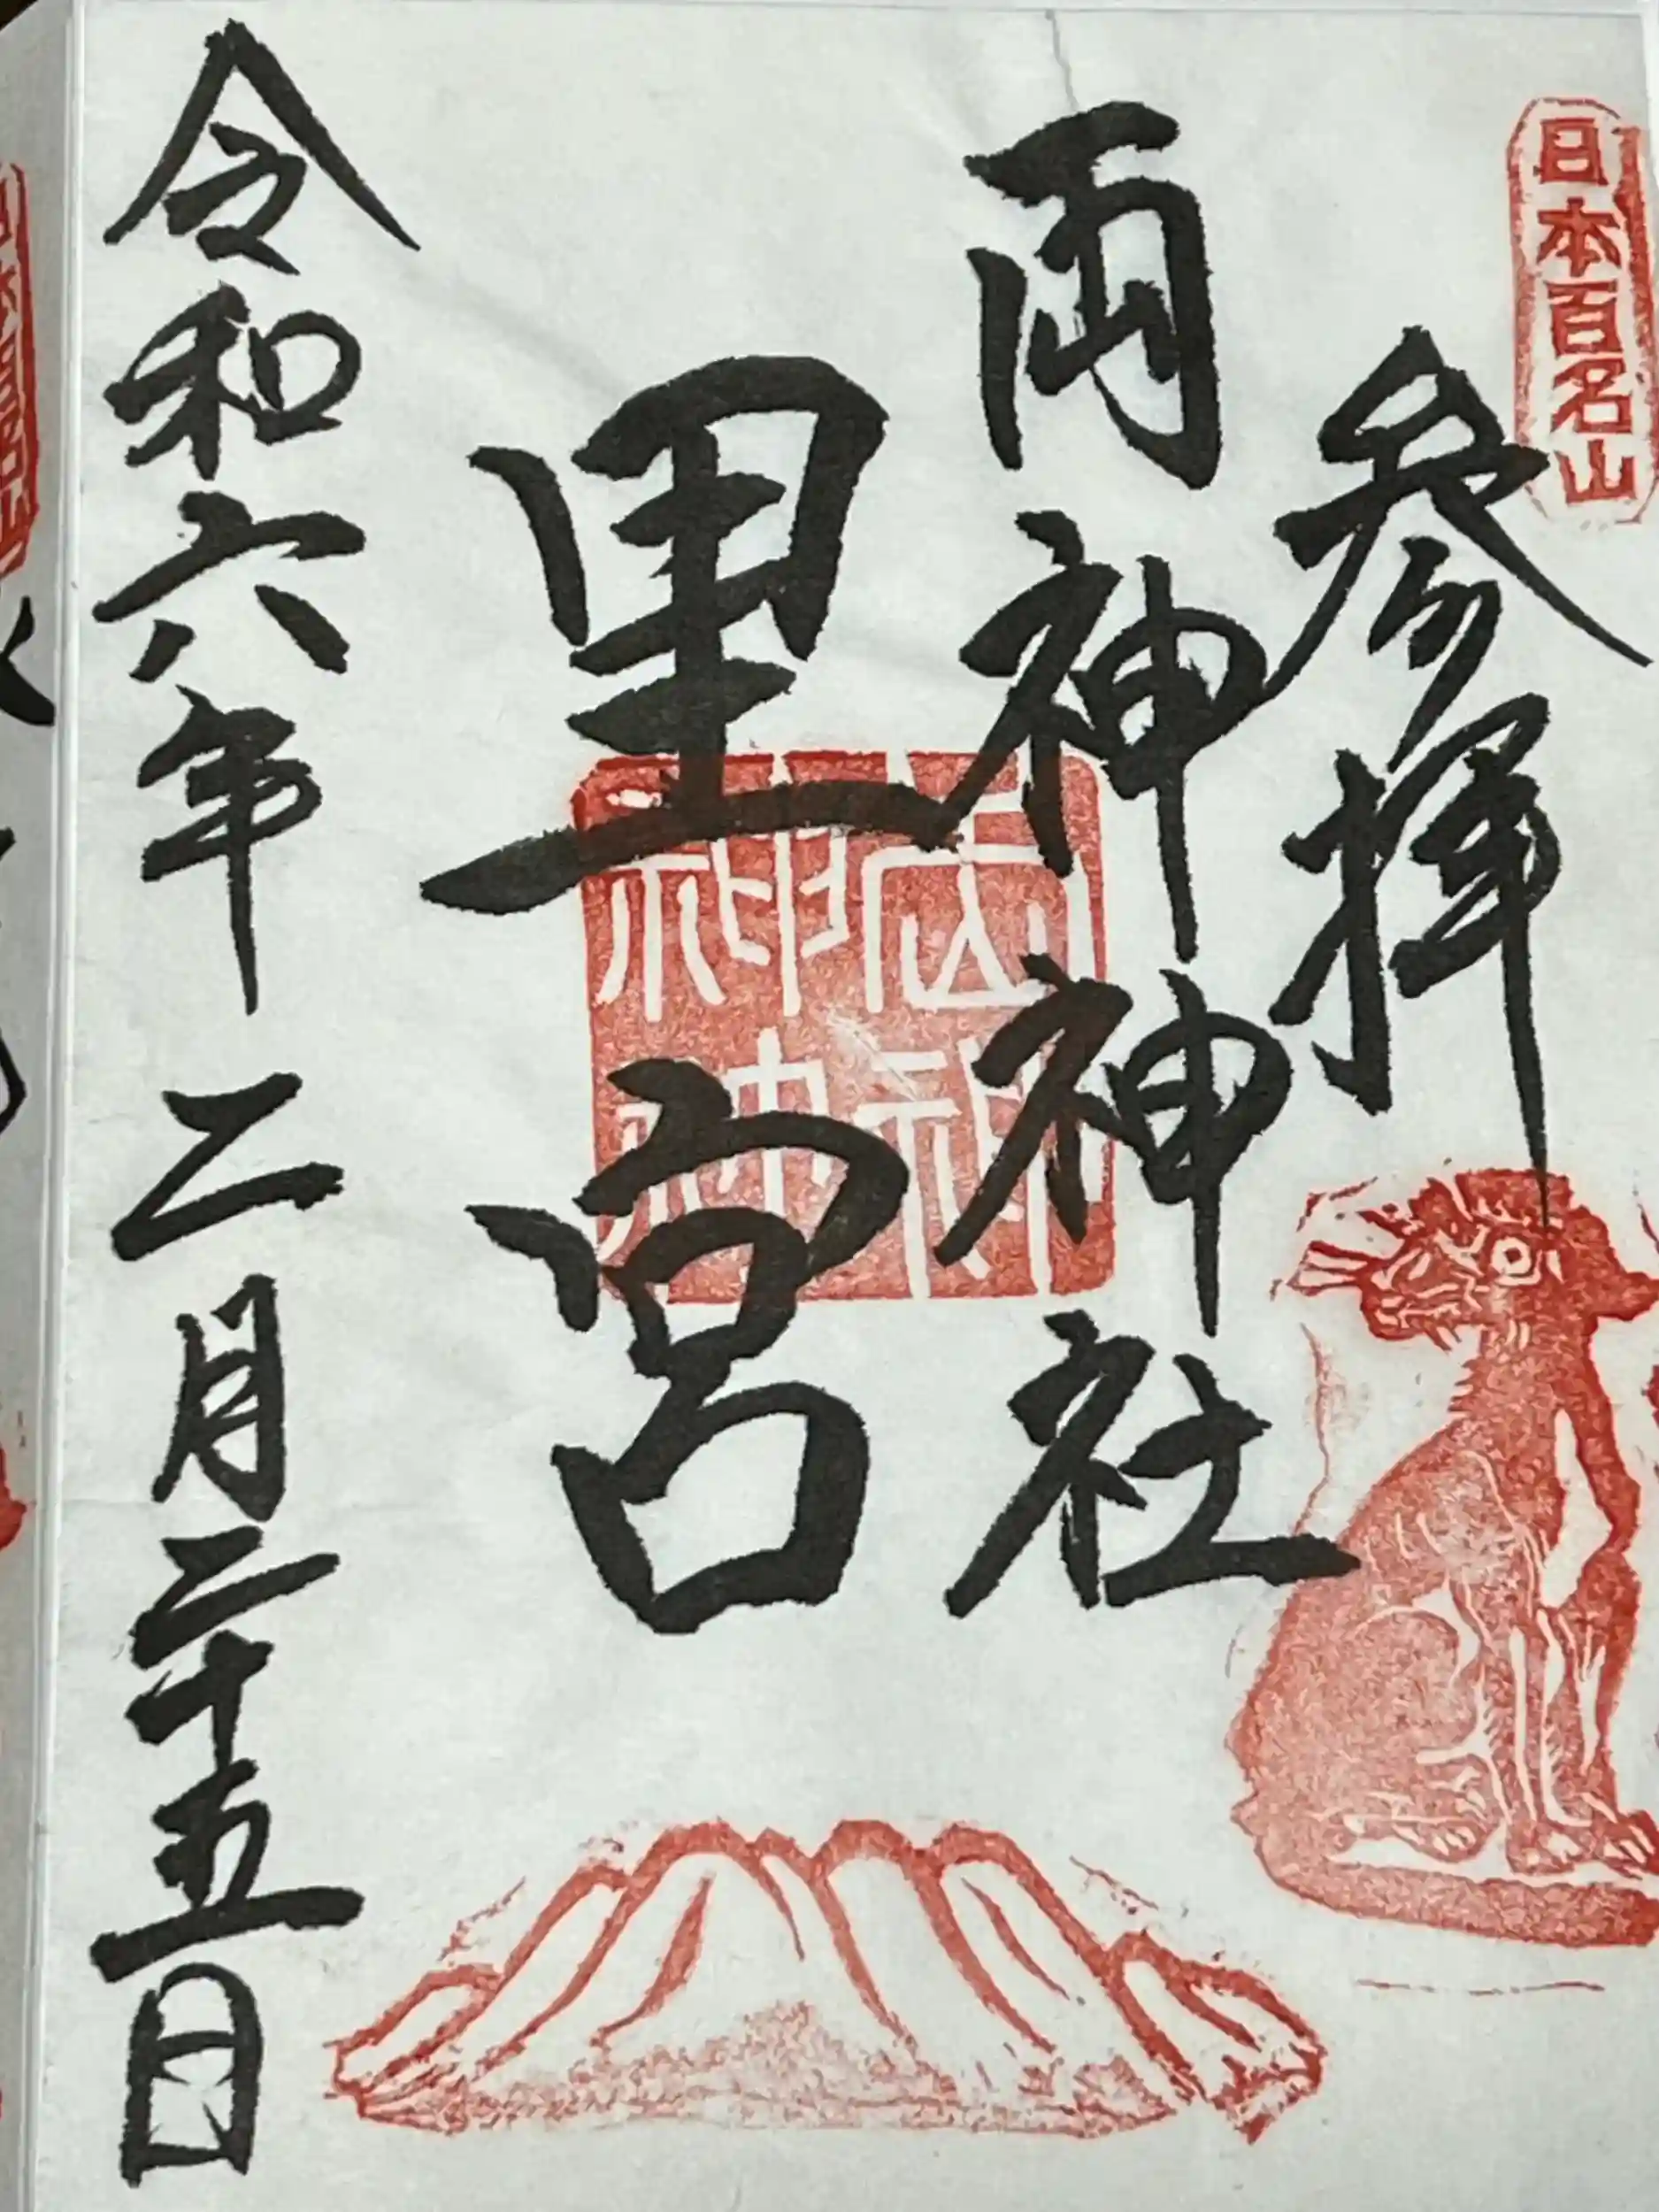 日本百名山
参拝
両神神社
里宮
令和六年二月二十五日